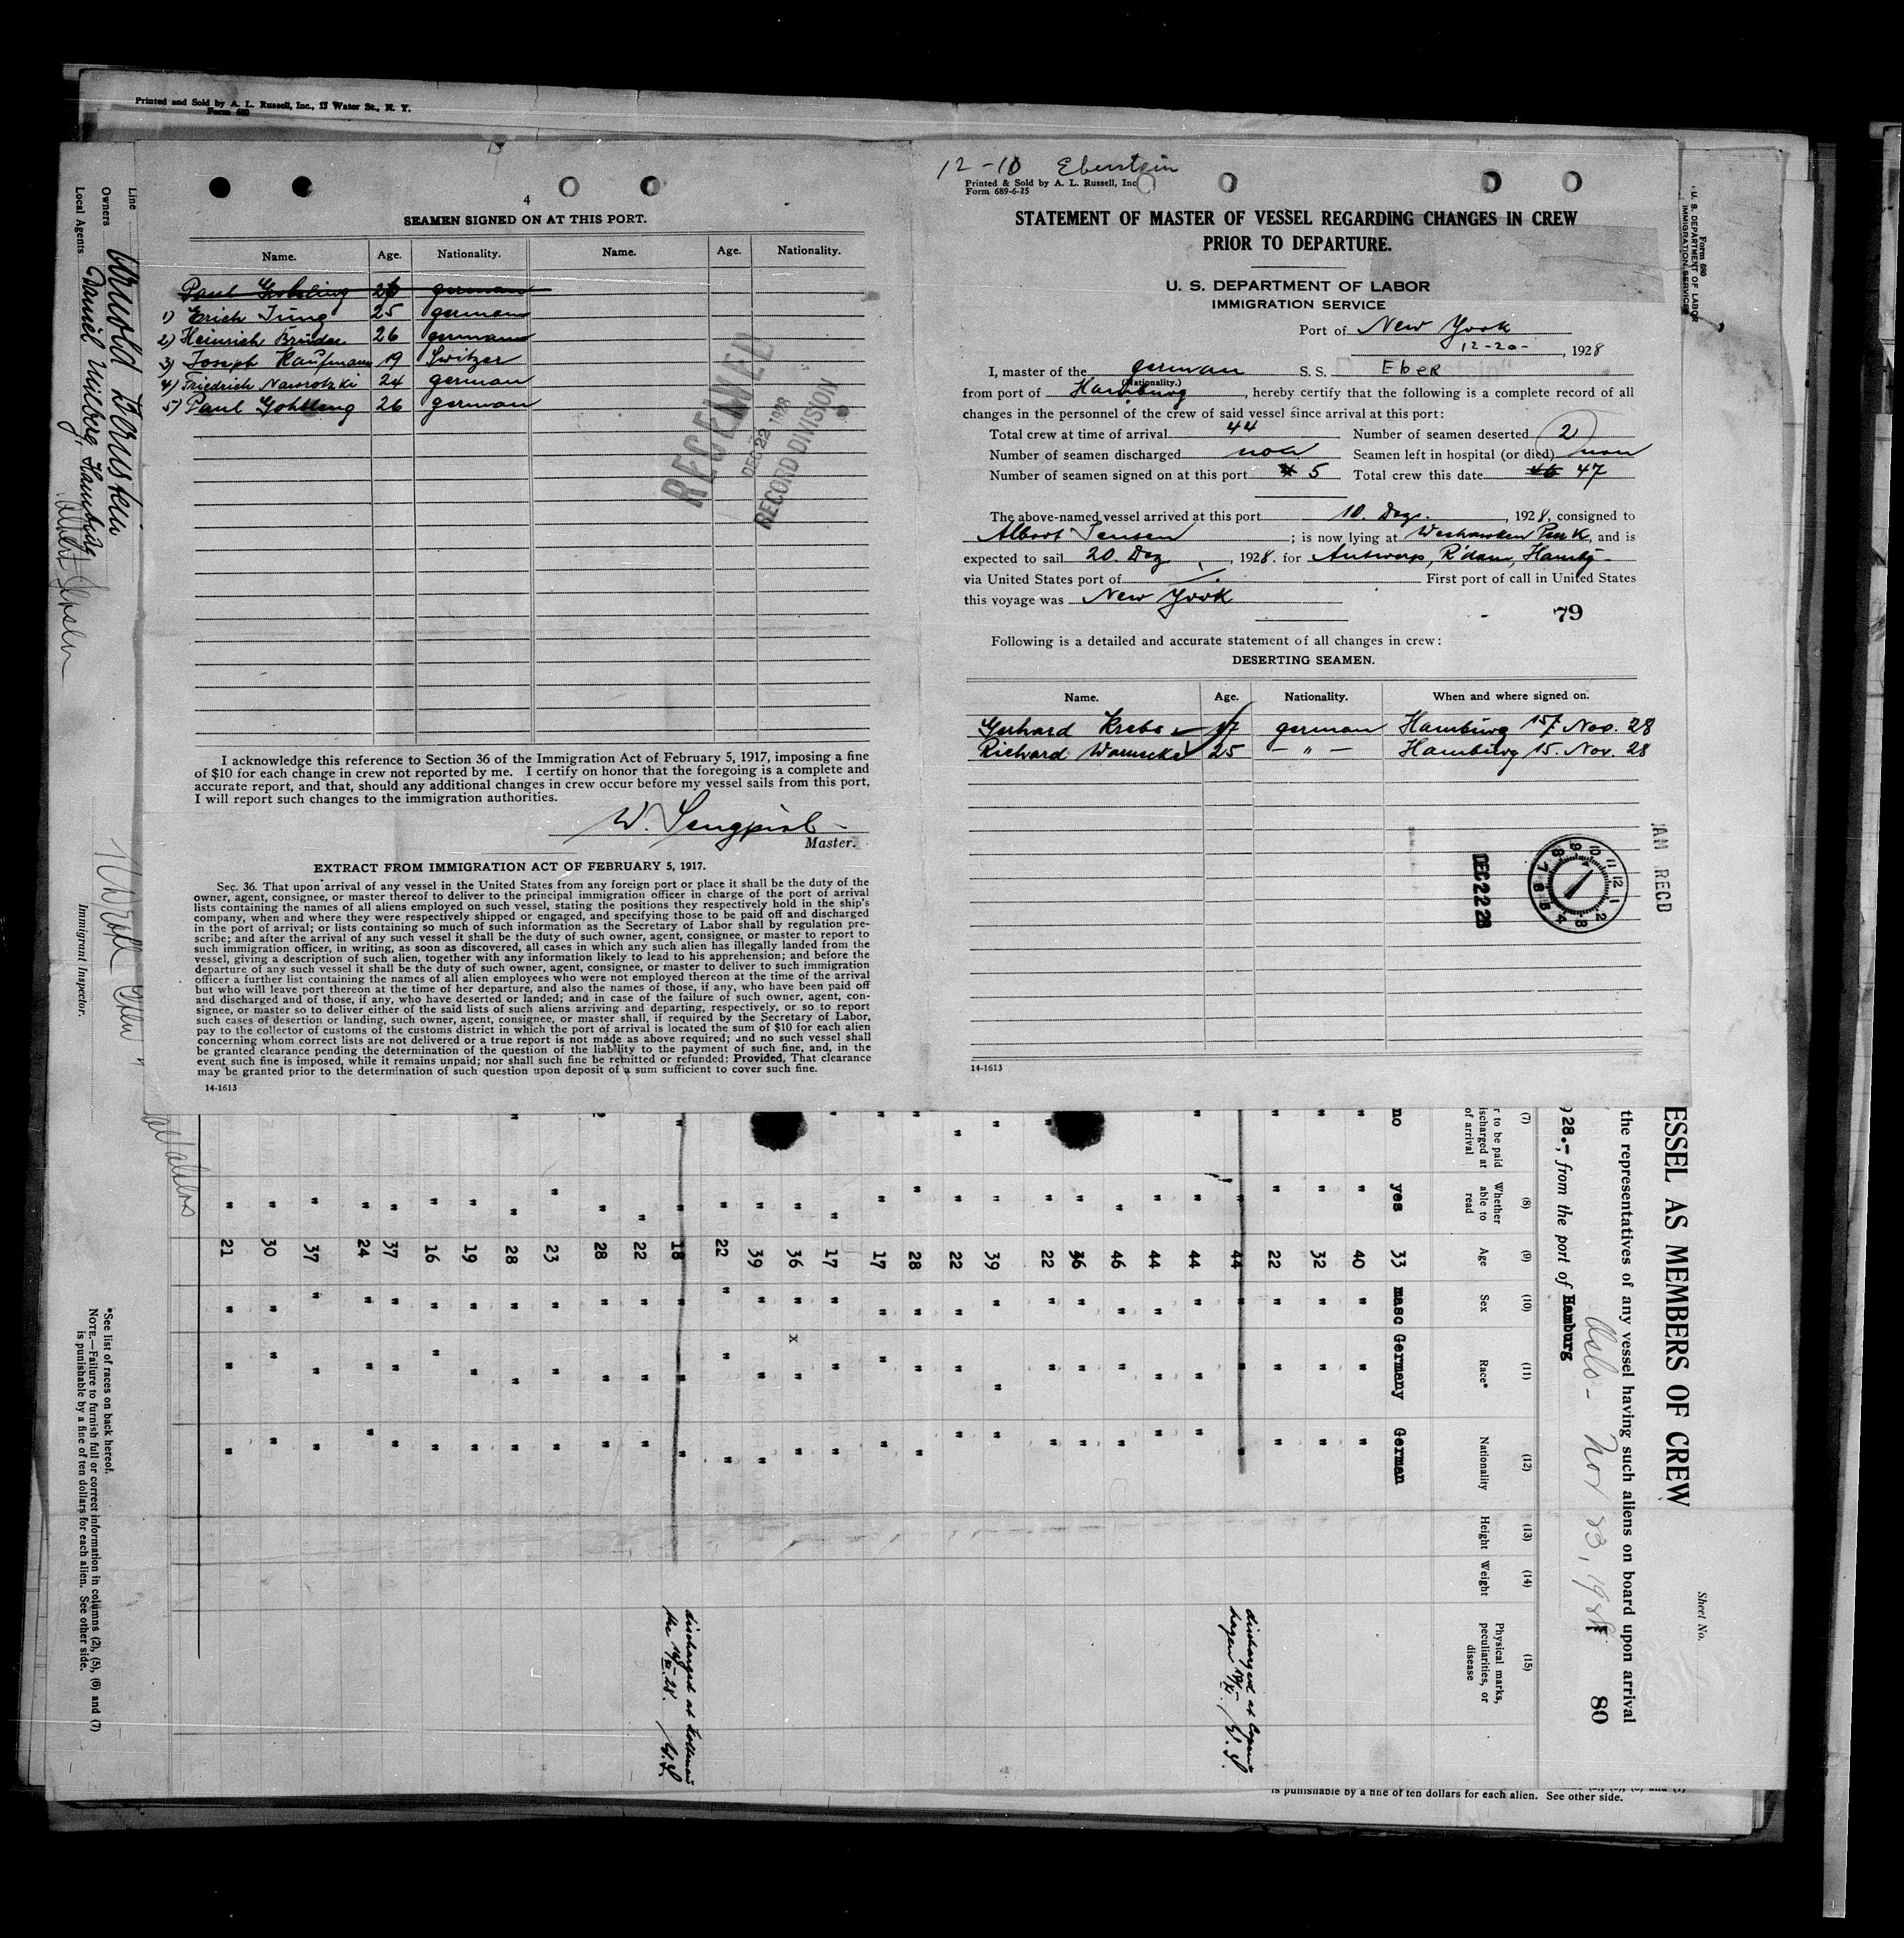 Printed and Sold by A. L. Russell, Inc., 13 Water St., N. Y.
Form 680
4
SEAMEN SIGNED ON AT THIS PORT.
Name. Age. Nationality. Name. Age. Nationality.
Paul 26 german
1) Erich Jung 25 german
2) Heinrich Brüder 26 german
3) Joseph Kaufmann 19 Switzer
4) Friedrich Nawrotzki 24 german
5) Paul 26 german
RECEIVED
DEC 22 1928
RECORD DIVISION
I acknowledge this reference to Section 36 of the Immigration Act of February 5, 1917, imposing a fine
of $10 for each change in crew not reported by me. I certify on honor that the foregoing is a complete and
accurate report, and that, should any additional changes in crew occur before my vessel sails from this port,
I will report such changes to the immigration authorities.
W.
Master.
EXTRACT FROM IMMIGRATION ACT OF FEBRUARY 5, 1917.
Sec. 36. That upon arrival of any vessel in the United States from any foreign port or place it shall be the duty of the
owner, agent, consignee, or master thereof to deliver to the principal immigration officer in charge of the port of arrival
lists containing the names of all aliens employed on such vessel, stating the positions they respectively hold in the ship's
company, when and where they were respectively shipped or engaged, and specifying those to be paid off and discharged
in the port of arrival; or lists containing so much of such information as the Secretary of Labor shall by regulation pre-
scribe; and after the arrival of any such vessel it shall be the duty of such owner, agent, consignee, or master to report to
such immigration officer, in writing, as soon as discovered, all cases in which any such alien has illegally landed from the
vessel, giving a description of such alien, together with any information likely to lead to his apprehension; and before the
departure of any such vessel it shall be the duty of such owner, agent, consignee, or master to deliver to such immigration
officer a further list containing the names of all alien employees who were not employed thereon at the time of the arrival
but who will leave port thereon at the time of her departure, and also the names of those, if any, who have been paid off
and discharged and of those, if any, who have deserted or landed; and in case of the failure of such owner, agent, con-
signee, or master so to deliver either of the said lists of such aliens arriving and departing, respectively, or so to report
such cases of desertion or landing, such owner, agent, consignee, or master shall, if required by the Secretary of Labor,
pay to the collector of customs of the customs district in which the port of arrival is located the sum of $10 for each alien
concerning whom correct lists are not delivered or a true report is not made as above required; and no such vessel shall
be granted clearance pending the determination of the question of the liability to the payment of such fine, and, in the
event such fine is imposed, while it remains unpaid; nor shall such fine be remitted or refunded: Provided, That clearance
may be granted prior to the determination of such question upon deposit of a sum sufficient to cover such fine.
14-1613
12-10 Eberstein
Printed & Sold by A. L. Russell, Inc
Form 689-6-25
STATEMENT OF MASTER OF VESSEL REGARDING CHANGES IN CREW
PRIOR TO DEPARTURE.
U. S. DEPARTMENT OF LABOR
IMMIGRATION SERVICE
Port of New York
12-20-, 1928
I, master of the german S. S. Eber
(Nationality.)
from port of Hamburg, hereby certify that the following is a complete record of all
changes in the personnel of the crew of said vessel since arrival at this port:
Total crew at time of arrival 44 Number of seamen deserted 2
Number of seamen discharged non Seamen left in hospital (or died) non
Number of seamen signed on at this port 4 5 Total crew this date 46 47
The above-named vessel arrived at this port 10. Dez., 1928, consigned to
Albert Jensen; is now lying at Weehawken Pier K, and is
expected to sail 20. Dez, 1928. for Antwerp, R'dam, Hambg-
via United States port of /. First port of call in United States
this voyage was New York
79
Following is a detailed and accurate statement of all changes in crew:
DESERTING SEAMEN.
Name. Age. Nationality. When and where signed on.
Gerhard Krebs 17 german Hamburg 15. Nov. 28
Richard Warnecke 25 — " — Hamburg 15. Nov. 28
DEC 22 28
AM RECD
14-1613
Form 680
U. S. DEPARTMENT OF LABOR
IMMIGRATION SERVICE
Line
Owners Arnold Bernstein
Local Agents Daniel Milberg, Hamburg
Immigrant Inspector.
Sheet No.
ESSEL AS MEMBERS OF CREW
the representatives of any vessel having such aliens on board upon arrival
80
Oslo - Nov 23, 1928
928.-, from the port of Hamburg
(7) (8) (9) (10) (11) (12) (13) (14) (15)
r to be paid
ischarged at
of arrival
Whether
able to
read
Age
Sex
Race*
Nationality
Height
Weight
Physical marks,
peculiarities, or
disease
no yes 33 masc Germany German
" " 40 " " "
" " 32 " " "
" " 22 " " "
" 44 " " "
" " 44 " " "
" 44 " " "
" 46 " " "
" 36 " " "
" " 22 " " "
" " 39 " " "
" " 22 " " "
" " 28 " " "
" " 17 " " "
" " 17 " " "
" 36 " x " "
" 39 " " "
" 22 " " "
" " 18 " " "
" 22 " " "
" " 28 " " "
" 23 " " "
" " 28 " " "
" 19 " " "
" 16 " " "
" 37 " " "
" 24 " " "
" 37 " " "
" 30 " " "
" 21 " " "
discharged at Copen-
hagen
discharged at
the
*See list of races on back hereof.
NOTE.—Failure to furnish full or correct information in columns (2), (5), (6) and (7)
is punishable by a fine of ten dollars for each alien. See other side.
is punishable by a fine of ten dollars for each alien. See other side.